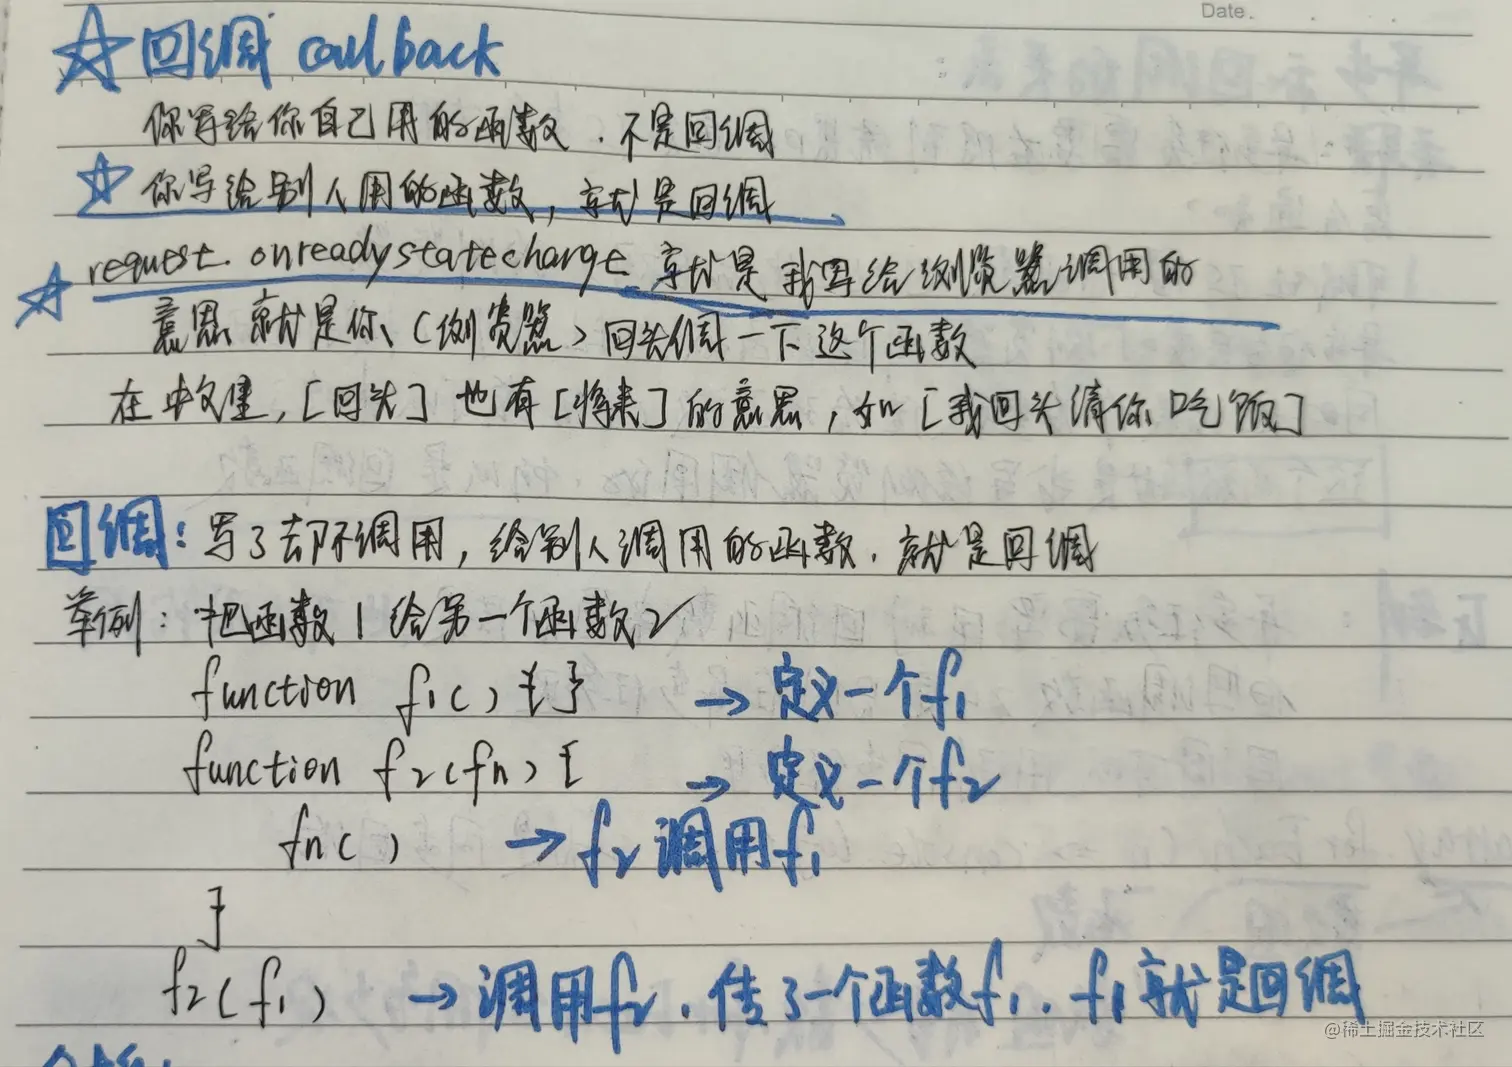 Date.
☆回调 callback
你写给你自己用的函数.不是回调
☆你写给别人用的函数,就是回调
☆request.onreadystatecharge 就是我写给浏览器调用的
意思就是你(浏览器)回头调一下这个函数
在中文里,[回头]也有[将来]的意思,如[我回头请你吃饭]
回调:写了却不调用,给别人调用的函数.就是回调
举例:把函数1给另一个函数2
function f1() {} → 定义一个f1
function f2(fn) { → 定义一个f2
fn() → f2调用f1
}
f2(f1) → 调用f2.传了一个函数f1.f1就是回调
@稀土掘金技术社区